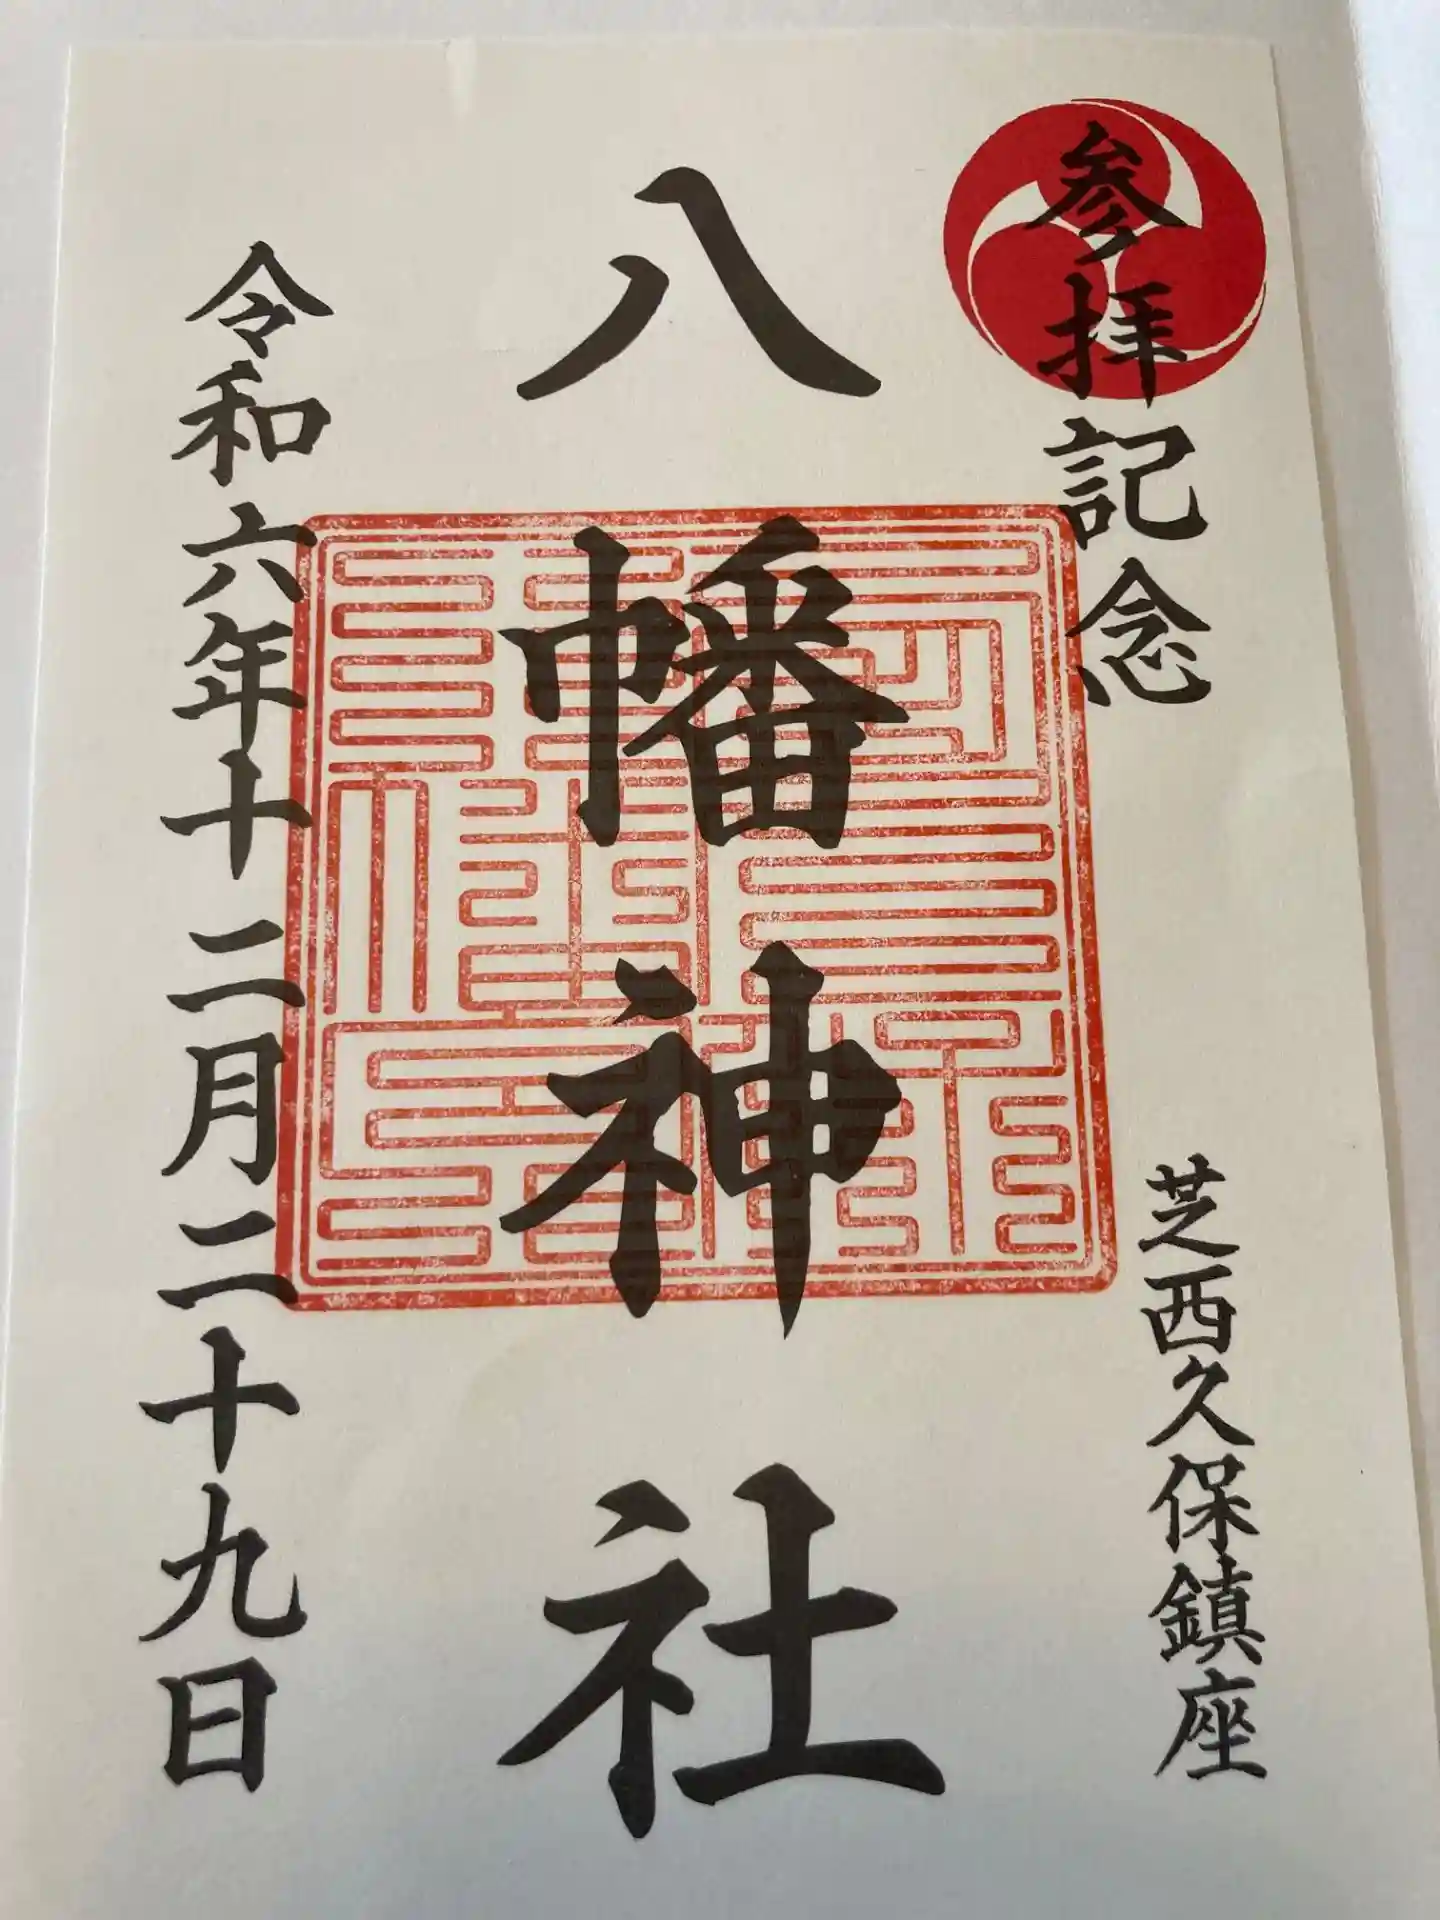 参拝記念
芝西久保鎮座
八幡神社
令和六年十二月二十九日